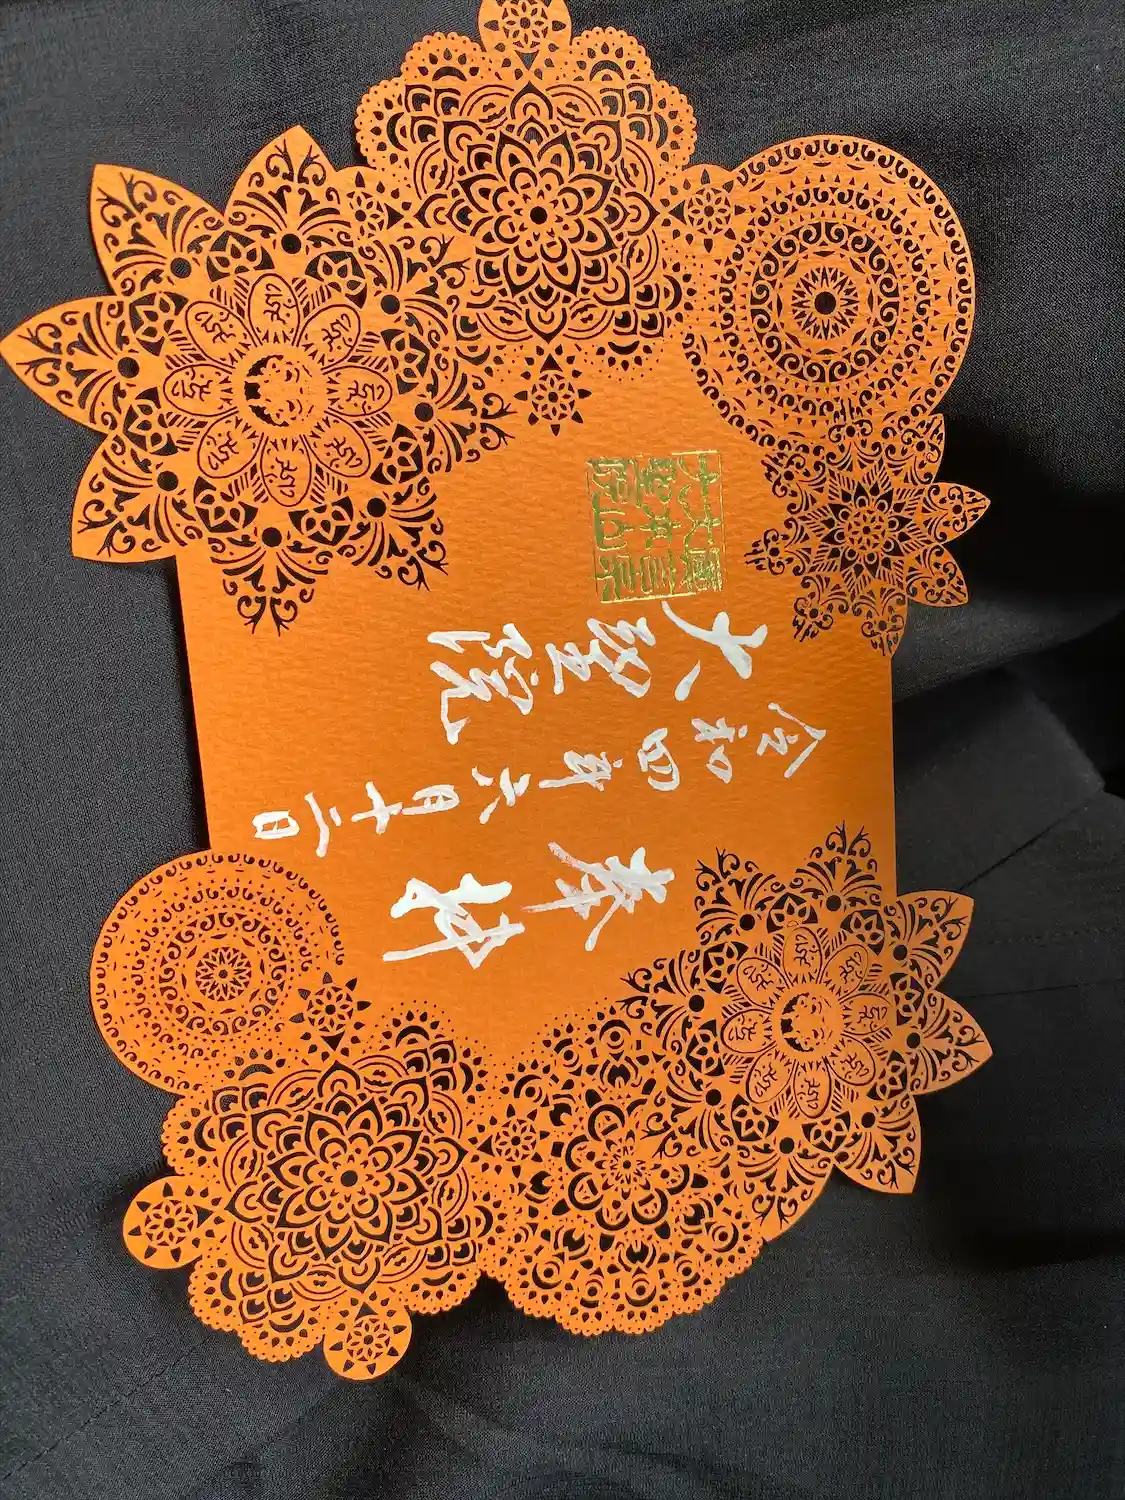 奉拝
令和四年六月十二日
大聖院